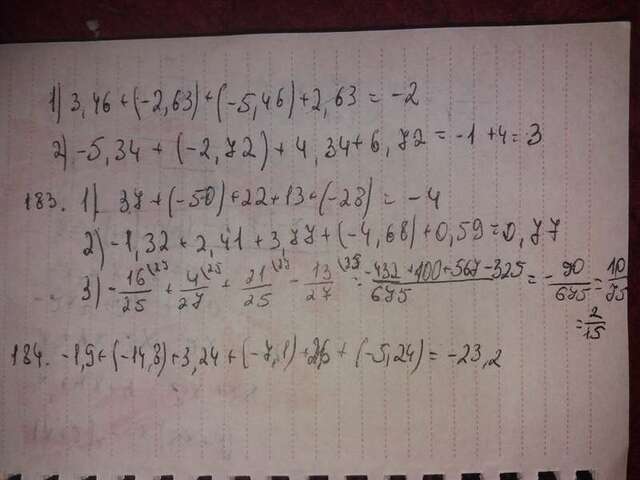 1) 3,46 + (-2,63) + (-5,46) + 2,63 = -2
2) -5,34 + (-2,82) + 4,34 + 6,82 = -1 + 4 = 3
183. 1) 37 + (-50) + 22 + 13 + (-23) = -4
2) -1,32 + 2,41 + 3,87 + (-4,68) + 0,59 = 0,87
3) -16/25 + 4/27 + 21/25 - 13/27 = -432 + 100 + 567 - 325 / 675 = -90/675 = 10/75
= 2/15
184. -1,9 + (-14,3) + 3,24 + (-7,1) + + (-5,24) = -23,2